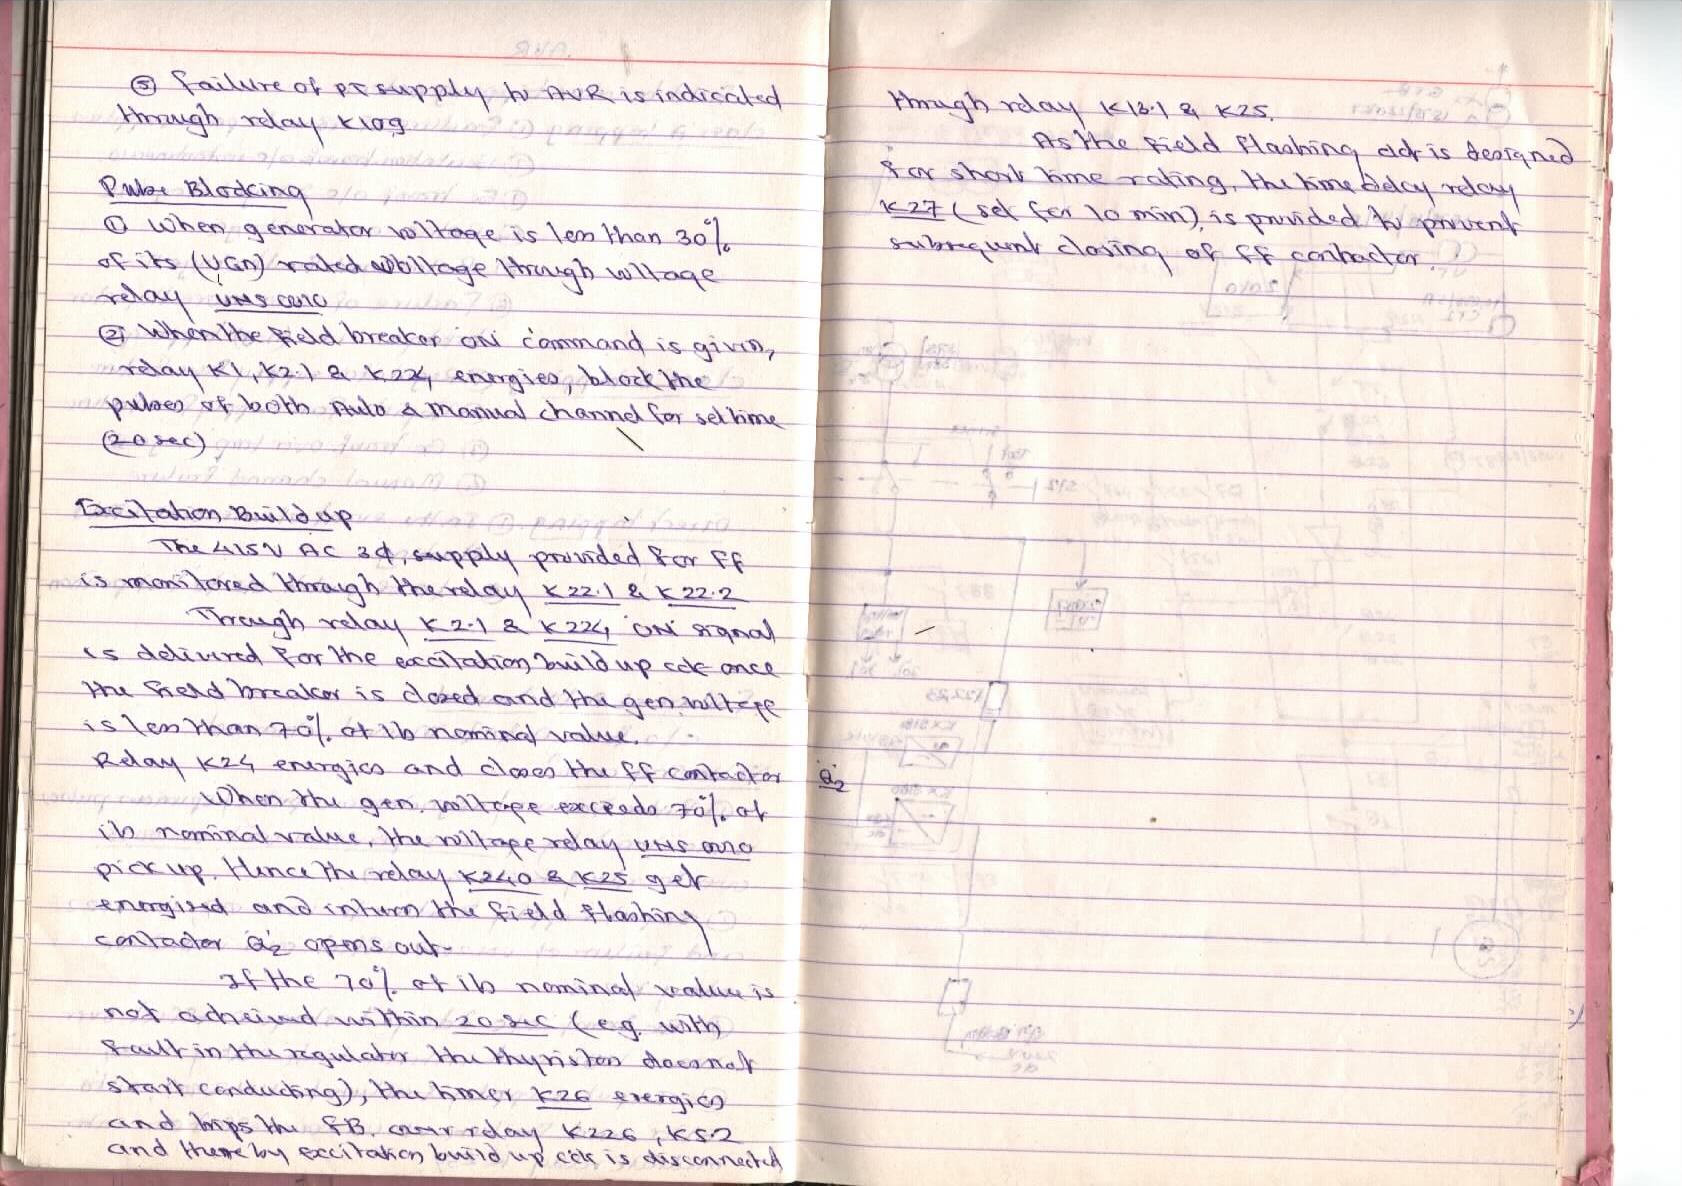 ⑤ Failure of PT supply to AVR is indicated
through relay K109
Pulse Blocking
① When generator voltage is less than 30%
of its (UGN) rated voltage through voltage
relay UNS
② When the field breaker ON command is given,
relay K1, K2.1 & K224 energies, block the
pulses of both Auto & manual channel for set time
(20 sec)
Excitation Build up
The 415V AC 3φ, supply provided for FF
is monitored through the relay K22.1 & K22.2
Through relay K2.1 & K224 ON signal
is delivered for the excitation build up ckt once
the field breaker is closed and the gen. voltage
is less than 70% of its nominal value.
Relay K24 energies and closes the FF contactor Q2
When the gen. voltage exceeds 70% of
its nominal value, the voltage relay UNS
pick up. Hence the relay K240 & K25 get
energised and inturn the field flashing
contactor Q2 opens out.
If the 70% of its nominal value is
not acheived within 20 sec (e.g. with
fault in the regulator the thyristors does not
start conducting), the timer K26 energies
and trips the FB. over relay K226, K5.2
and thereby excitation build up ckt is disconnected
through relay K13.1 & K25.
As the field flashing ckt is designed
for short time rating, the time delay relay
K27 (set for 10 min), is provided to prevent
subsequent closing of FF contactor.